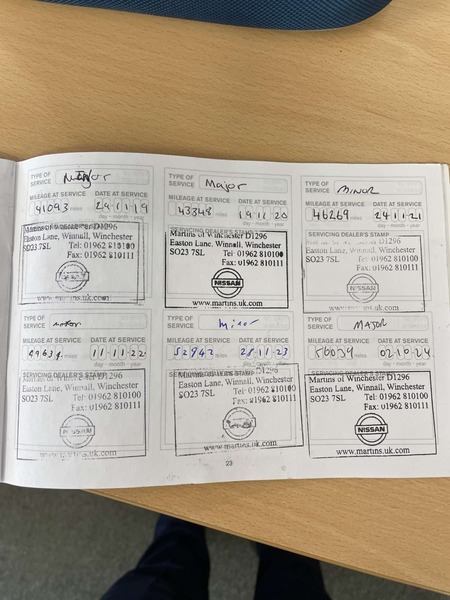 TYPE OF SERVICE
MILEAGE AT SERVICE DATE AT SERVICE
41093 miles 29 11 19
day - month - year
Martins of Winchester D1296
Easton Lane, Winnall, Winchester
SO23 7SL Tel: 01962 810100
Fax: 01962 810111
NISSAN
www.martins.uk.com
TYPE OF SERVICE Major
MILEAGE AT SERVICE DATE AT SERVICE
43348 miles 19 11 20
day - month - year
SERVICING DEALER'S STAMP
Martins of Winchester D1296
Easton Lane, Winnall, Winchester
SO23 7SL Tel: 01962 810100
Fax: 01962 810111
NISSAN
www.martins.uk.com
TYPE OF SERVICE MINOR
MILEAGE AT SERVICE DATE AT SERVICE
46269 miles 24 11 21
day - month - year
SERVICING DEALER'S STAMP
Easton Lane, Winnall, Winchester
SO23 7SL Tel: 01962 810100
Fax: 01962 810111
NISSAN
www.martins.uk.com
TYPE OF SERVICE
MILEAGE AT SERVICE DATE AT SERVICE
miles 11 11 22
day - month - year
SERVICING DEALER'S STAMP
Martins of Winchester D1296
Easton Lane, Winnall, Winchester
SO23 7SL Tel: 01962 810100
Fax: 01962 810111
NISSAN
www.martins.uk.com
TYPE OF SERVICE Minor
MILEAGE AT SERVICE DATE AT SERVICE
52942 miles 28 11 23
day - month - year
Easton Lane, Winnall, Winchester
SO23 7SL Tel: 01962 810100
Fax: 01962 810111
www.martins.uk.com
TYPE OF SERVICE MAJOR
MILEAGE AT SERVICE DATE AT SERVICE
56029 miles 02 10 24
day - month - year
Martins of Winchester D1296
Easton Lane, Winnall, Winchester
SO23 7SL Tel: 01962 810100
Fax: 01962 810111
NISSAN
www.martins.uk.com
23